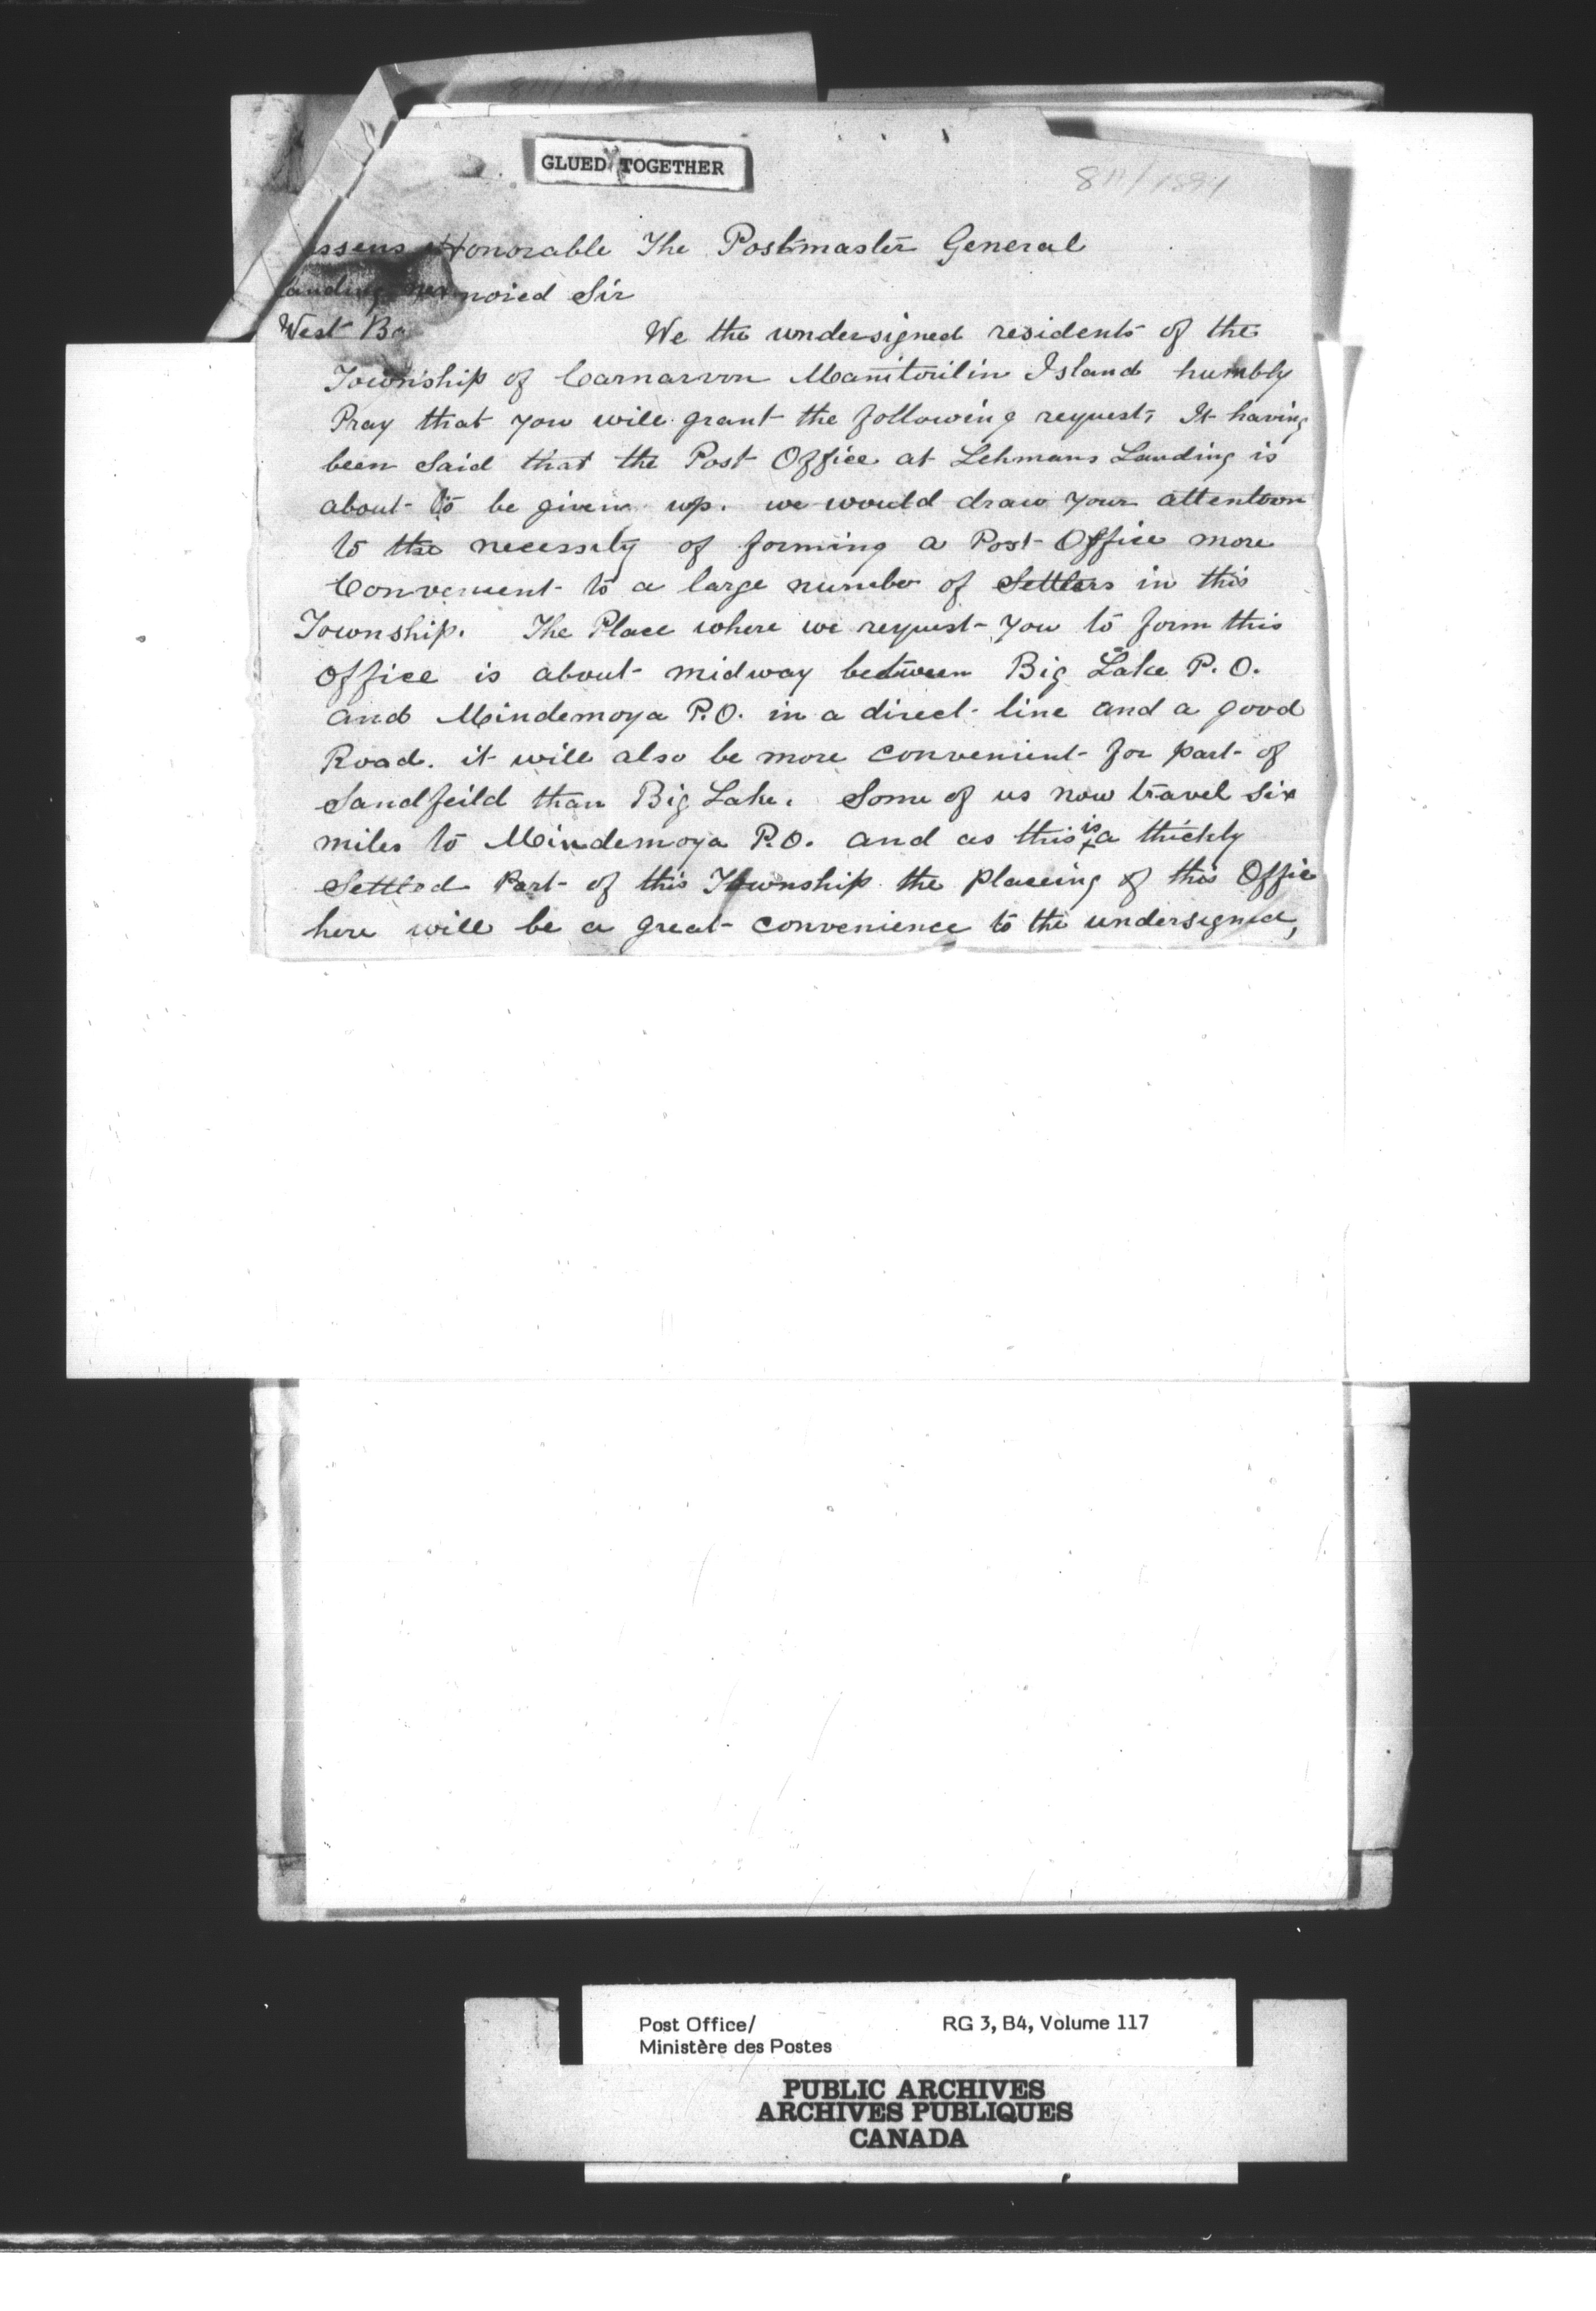 GLUED TOGETHER
811/1894
Honorable The Postmaster General
Sir
West Ba
We the undersigned residents of the
Township of Carnarvon Manitoulin Island humbly
Pray that you will grant the following request, It having
been said that the Post Office at Lehmans Landing is
about to be given up. we would draw your attention
to the necessity of forming a Post Office more
Convenient to a large number of Settlers in this
Township. The Place where we request you to form this
office is about midway between Big Lake P.O.
and Mindemoya P.O. in a direct line and a good
Road. it will also be more convenient for part of
Sandfeild than Big Lake. Some of us now travel six
miles to Mindemoya P.O. and as this is a thickly
Settled Part of this Township the placeing of this Office
here will be a great convenience to the undersigned,
Post Office/ RG 3, B4, Volume 117
Ministère des Postes
PUBLIC ARCHIVES
ARCHIVES PUBLIQUES
CANADA